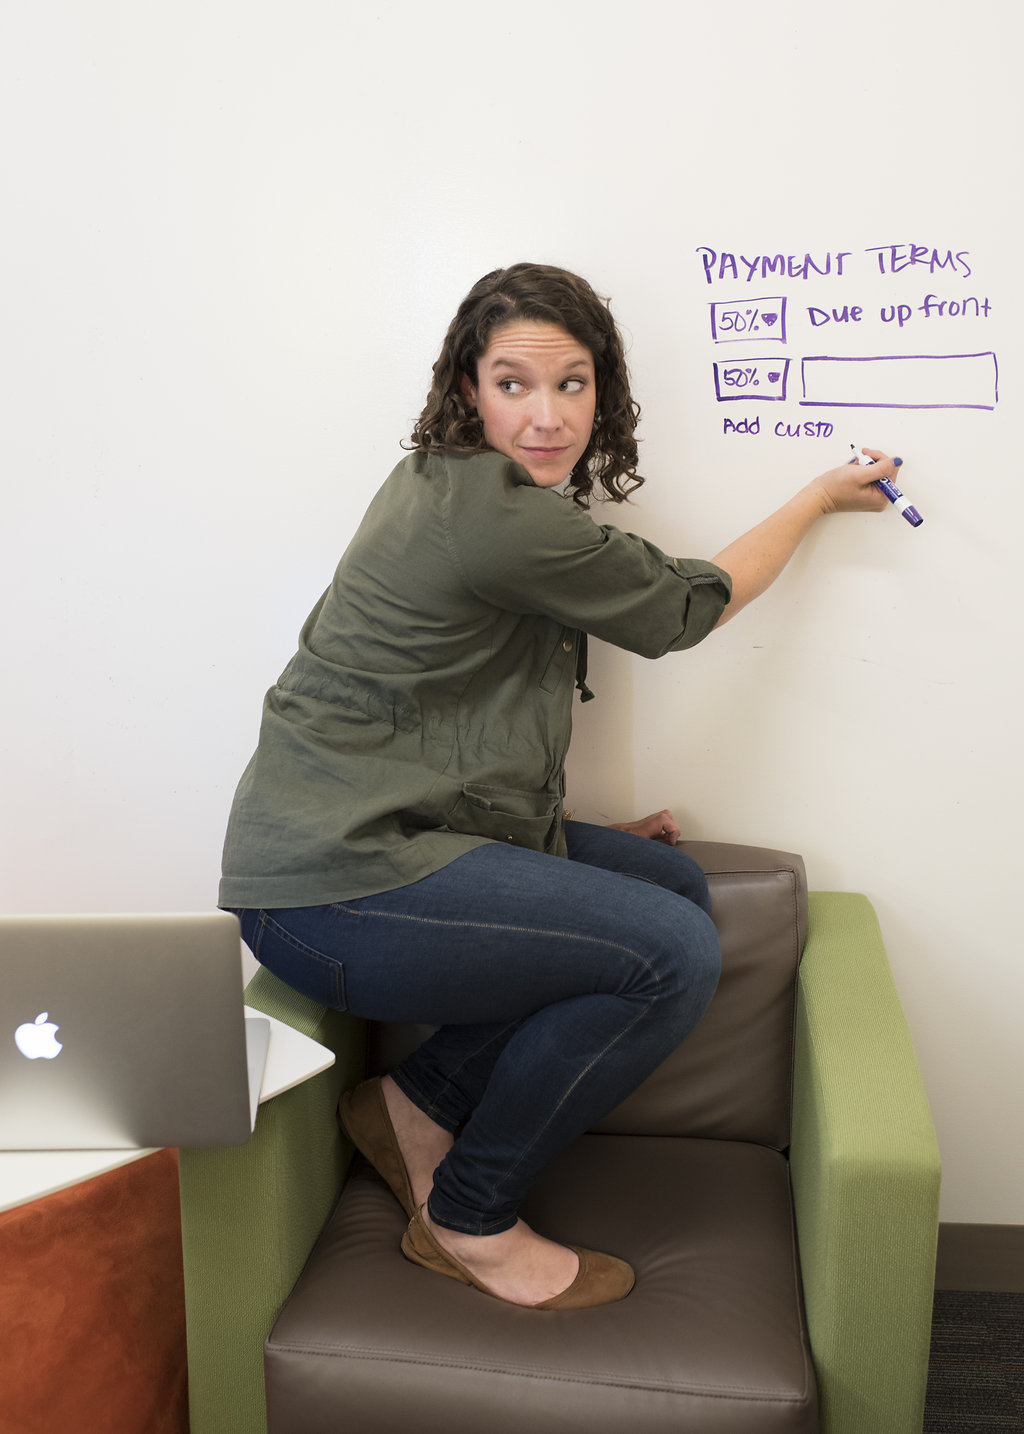 PAYMENT TERMS
50% Due up front
50%
Add custo